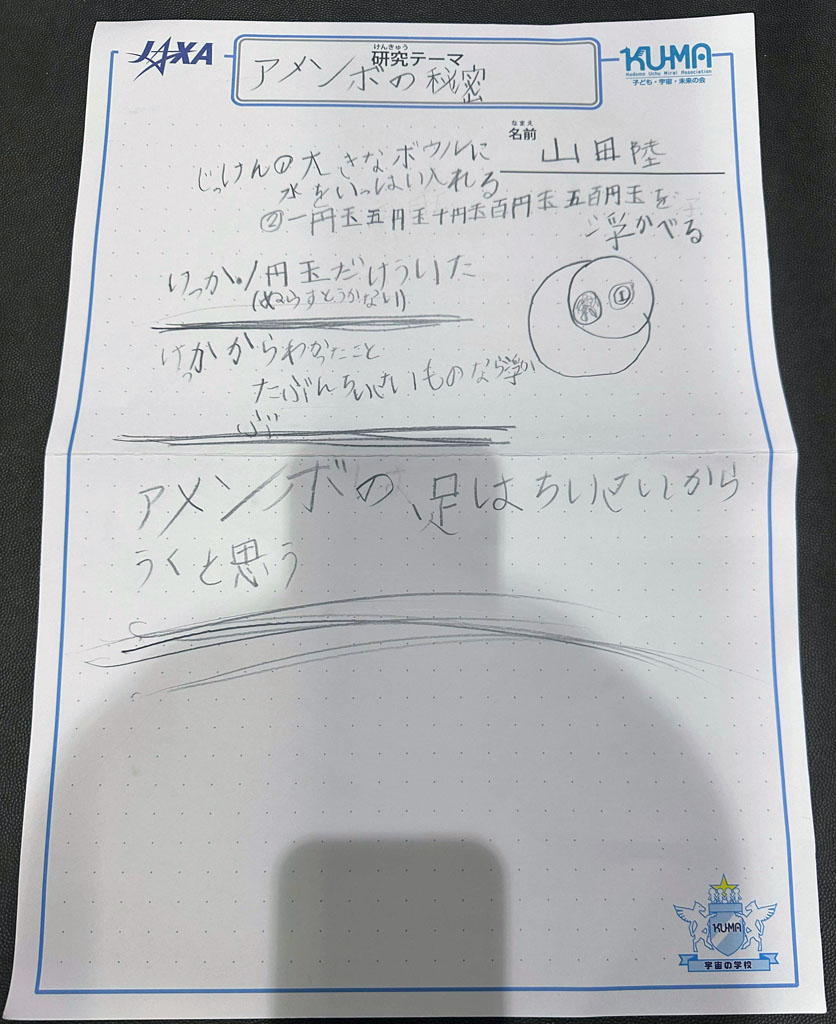 JAXA
けんきゅう
研究テーマ
アメンボの秘密
KU-MA
Kodomo Uchu Mirai Association
子ども・宇宙・未来の会
なまえ
名前
山田陸
じっけん①大きなボウルに
水をいっぱい入れる
②一円玉五円玉十円玉百円玉五百円玉を
浮かべる
けっか・1円玉だけういた
(ぬらすとうかない)
1
けっかからわかったこと
たぶんちいさいものなら浮か
ぶ
アメンボの足はちいさいから
うくと思う
KU-MA
宇宙の学校